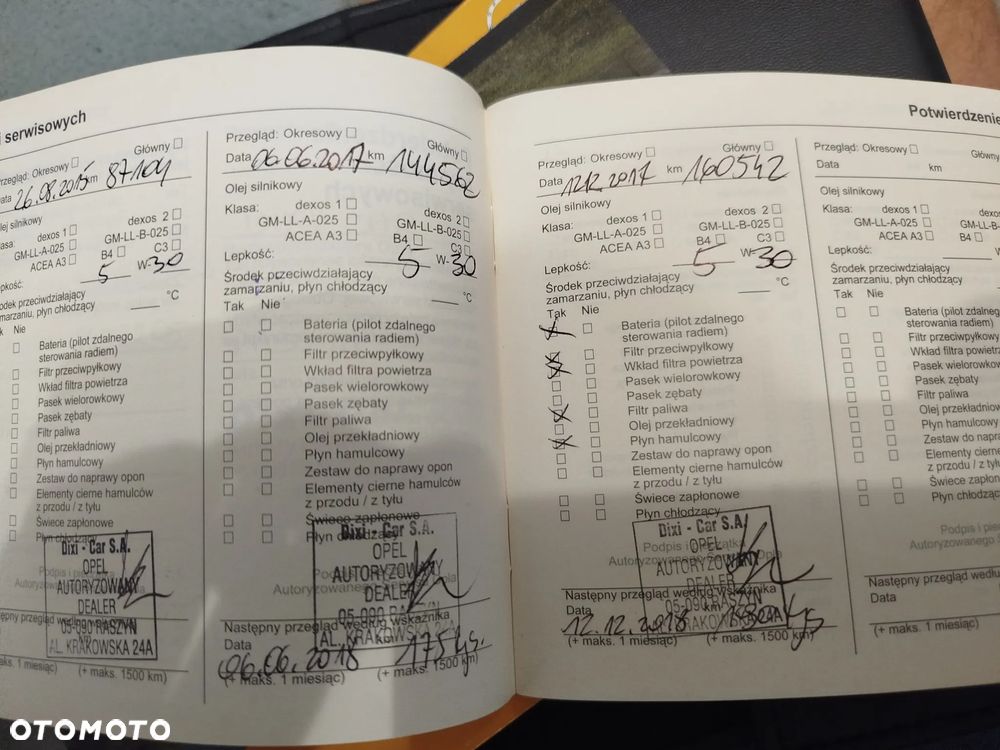 i serwisowych
Przegląd: Okresowy
Główny
Data 26.08.2015 km 87104
Olej silnikowy
Klasa: dexos 1 dexos 2
GM-LL-A-025 GM-LL-B-025
ACEA A3 B4 C3
Lepkość: 5 W-30
Środek przeciwdziałający
zamarzaniu, płyn chłodzący °C
Nie
Bateria (pilot zdalnego
sterowania radiem)
Filtr przeciwpyłkowy
Wkład filtra powietrza
Pasek wielorowkowy
Pasek zębaty
Filtr paliwa
Olej przekładniowy
Płyn hamulcowy
Zestaw do naprawy opon
Elementy cierne hamulców
z przodu / z tyłu
Świece zapłonowe
Dixi - Car S.A.
OPEL
AUTORYZOWANY
DEALER
05-090 RASZYN
AL. KRAKOWSKA 24A
(+ maks. 1500 km)
Przegląd: Okresowy
Główny
Data 06.06.2017 km 144562
Olej silnikowy
Klasa: dexos 1 dexos 2
GM-LL-A-025 GM-LL-B-025
ACEA A3 B4 C3
Lepkość: 5 W-30
Środek przeciwdziałający
zamarzaniu, płyn chłodzący °C
Tak Nie
Bateria (pilot zdalnego
sterowania radiem)
Filtr przeciwpyłkowy
Wkład filtra powietrza
Pasek wielorowkowy
Pasek zębaty
Filtr paliwa
Olej przekładniowy
Płyn hamulcowy
Zestaw do naprawy opon
Elementy cierne hamulców
z przodu / z tyłu
Świece zapłonowe
Płyn chłodzący
Dixi - Car S.A.
OPEL
AUTORYZOWANY
DEALER
05-090 RASZYN
AL. KRAKOWSKA 24A
Następny przegląd według wskaźnika
Data
06.06.2018
(+ maks. 1 miesiąc) (+ maks. 1500 km)
Potwierdzenie
Przegląd: Okresowy
Główny
Data 12.12.2017 km 160542
Olej silnikowy
Klasa: dexos 1 dexos 2
GM-LL-A-025 GM-LL-B-025
ACEA A3 B4 C3
Lepkość: 5 W-30
Środek przeciwdziałający
zamarzaniu, płyn chłodzący °C
Tak Nie
Bateria (pilot zdalnego
sterowania radiem)
Filtr przeciwpyłkowy
Wkład filtra powietrza
Pasek wielorowkowy
Pasek zębaty
Filtr paliwa
Olej przekładniowy
Płyn hamulcowy
Zestaw do naprawy opon
Elementy cierne hamulców
z przodu / z tyłu
Świece zapłonowe
Płyn chłodzący
Dixi - Car S.A.
OPEL
AUTORYZOWANY
DEALER
KRAKOWSKA 24A
Następny przegląd według wskaźnika
Data km
12.12.2018
(+ maks. 1 miesiąc) (+ maks. 1500 km)
Przegląd: Okresowy
Data km
Olej silnikowy
Klasa: dexos 1
GM-LL-A-025
ACEA A3 B4
Lepkość:
Środek przeciwdziałający
zamarzaniu, płyn chłodzący
Tak Nie
Bateria (pilot zdalnego
sterowania radiem)
Filtr przeciwpyłkowy
Wkład filtra powietrza
Pasek wielorowkowy
Pasek zębaty
Filtr paliwa
Olej przekładniowy
Płyn hamulcowy
Zestaw do naprawy
Elementy cierne
z przodu / z tyłu
Świece zapłonowe
Płyn chłodzący
Podpis i
Autoryzowanego
Następny przegląd
Data
(+ maks. 1 miesiąc)
OTOMOTO